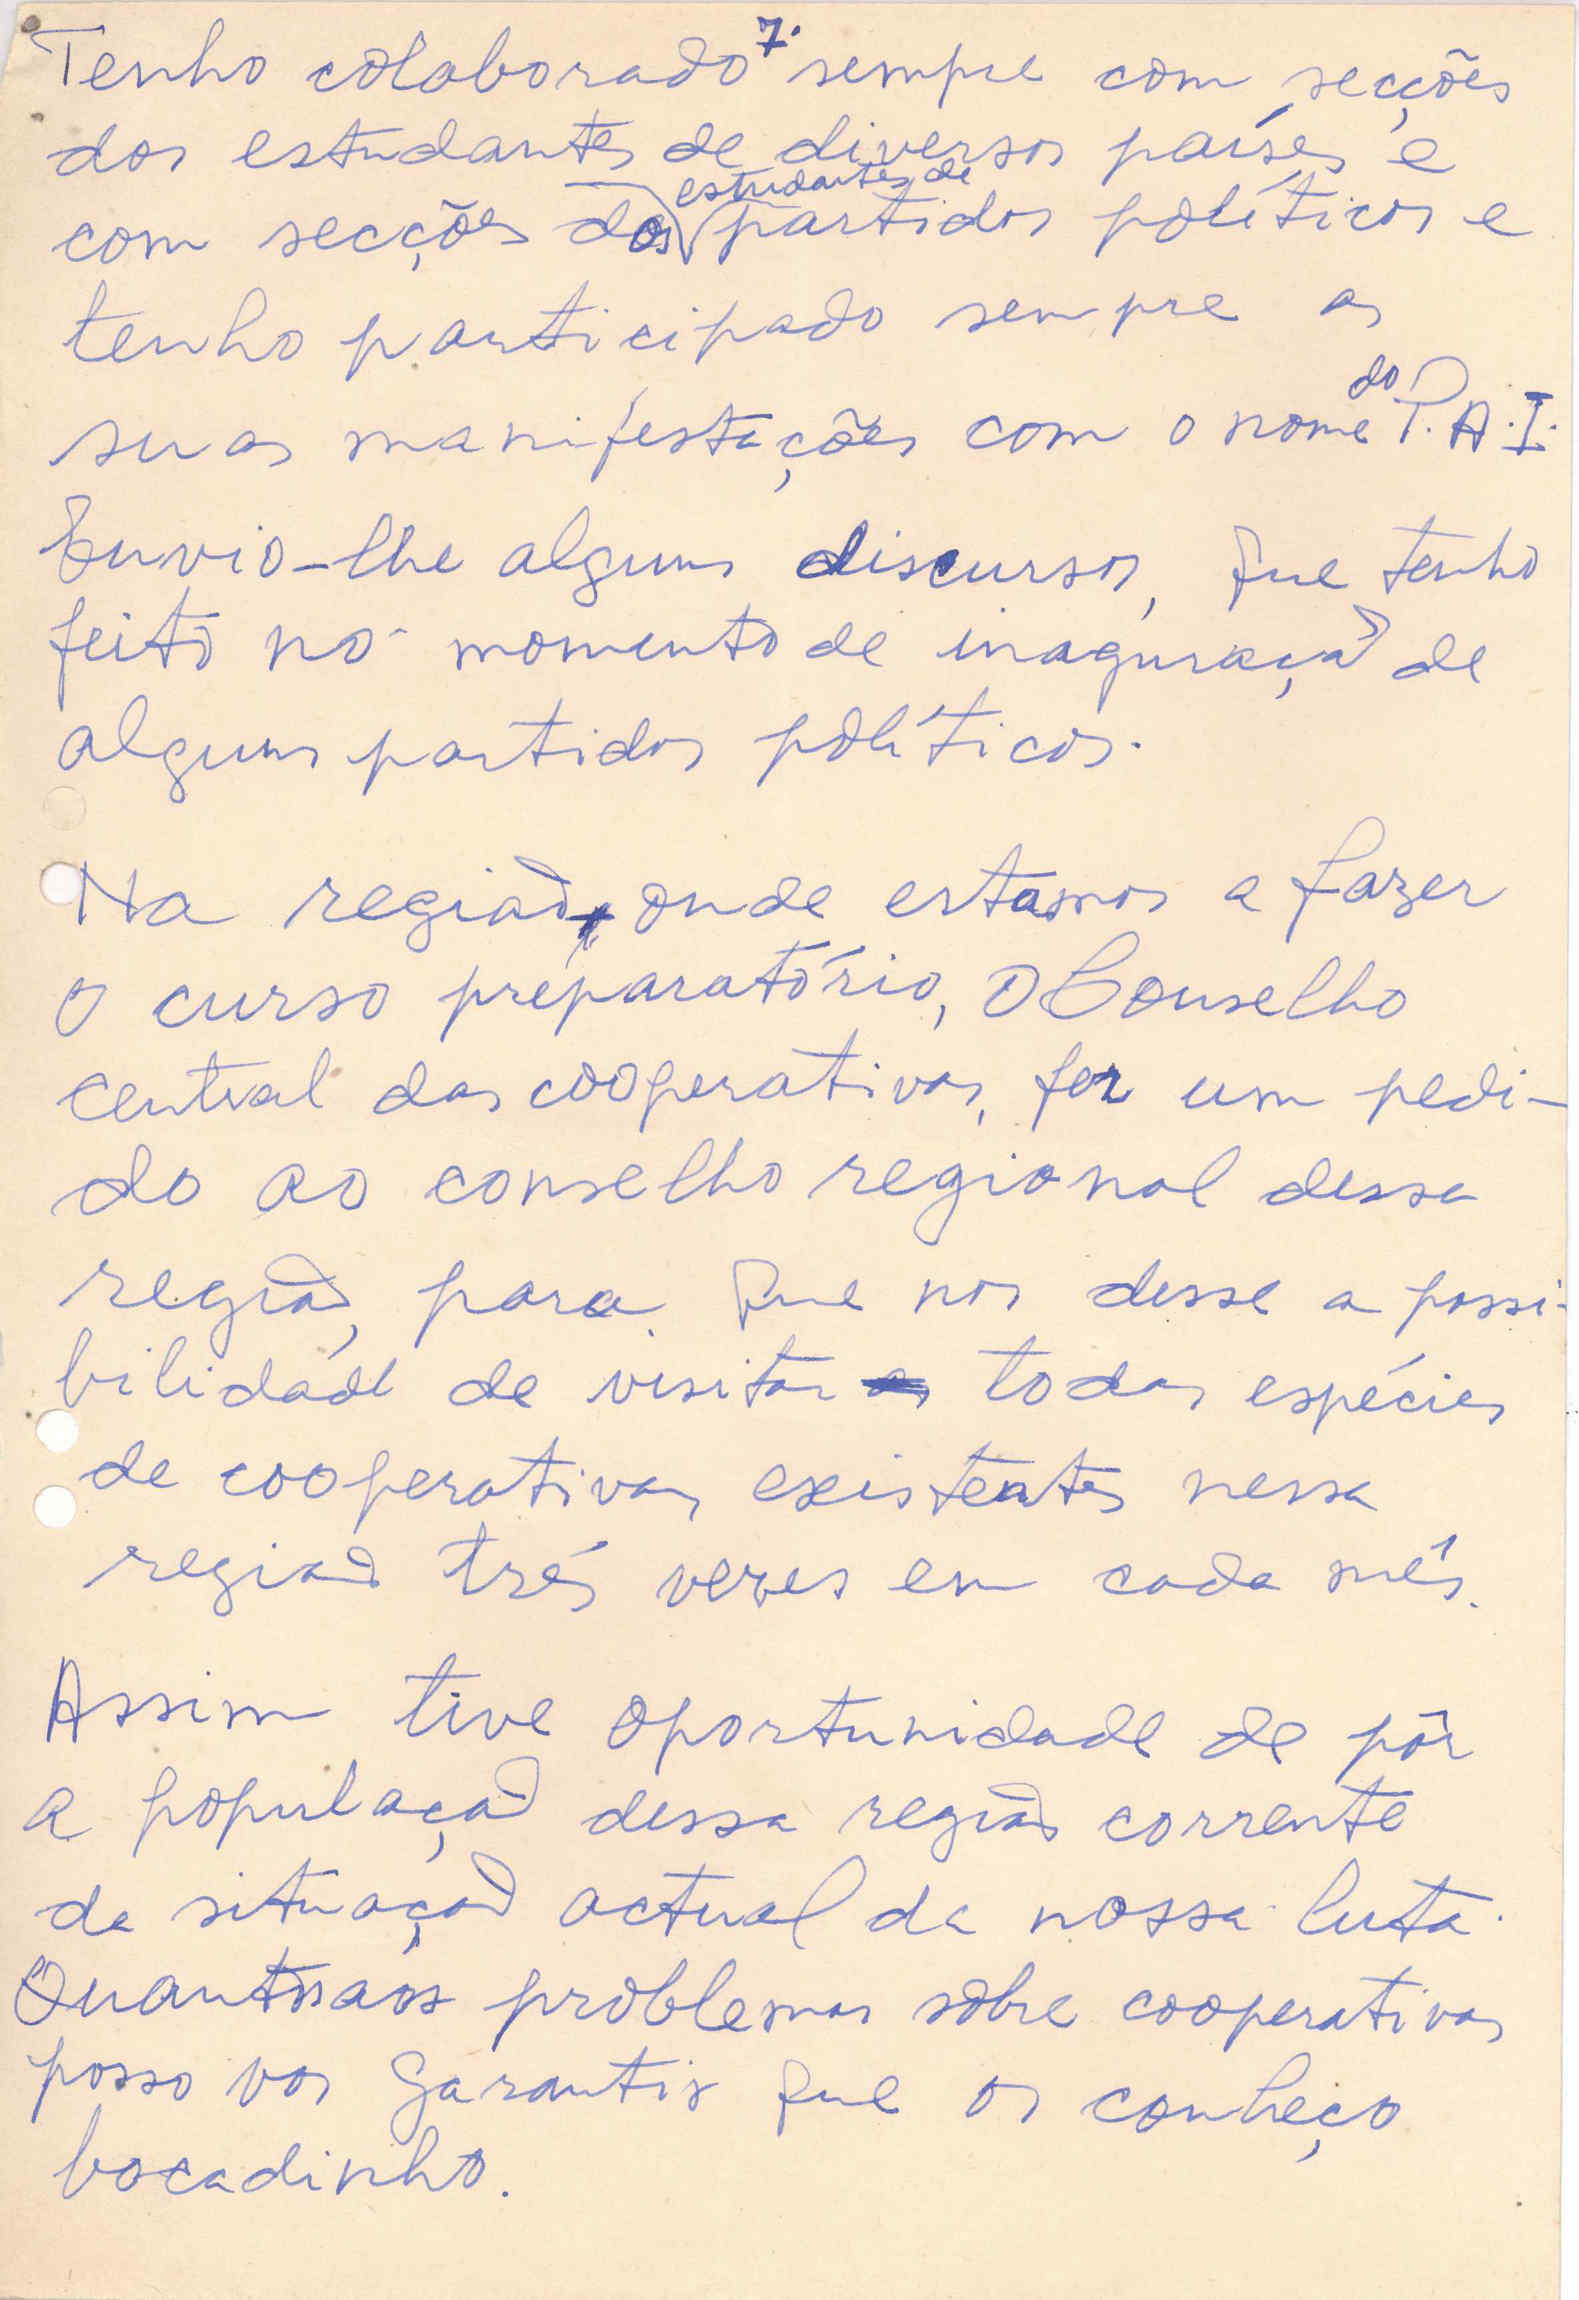 7.
Tenho colaborado sempre com secções
dos estudantes de diversos países e
estudantes de
com secções dos partidos políticos e
tenho participado sempre as
suas manifestações com o nome do P.A.I.
Envio-lhe alguns discursos, que tenho
feito no momento de inaguração de
alguns partidos políticos.
Na região, onde estamos a fazer
o curso preparatório, o Conselho
central das cooperativas, fez um pedi-
do ao conselho regional dessa
região, para que nos desse a possi-
bilidade de visitar todas espécies
de cooperativas existentes nessa
região três vezes em cada mês.
Assim tive oportunidade de pôr
a população dessa região corrente
da situação actual da nossa luta.
Quanto aos problemas sobre cooperativas
posso vos garantir que os conheço
bocadinho.